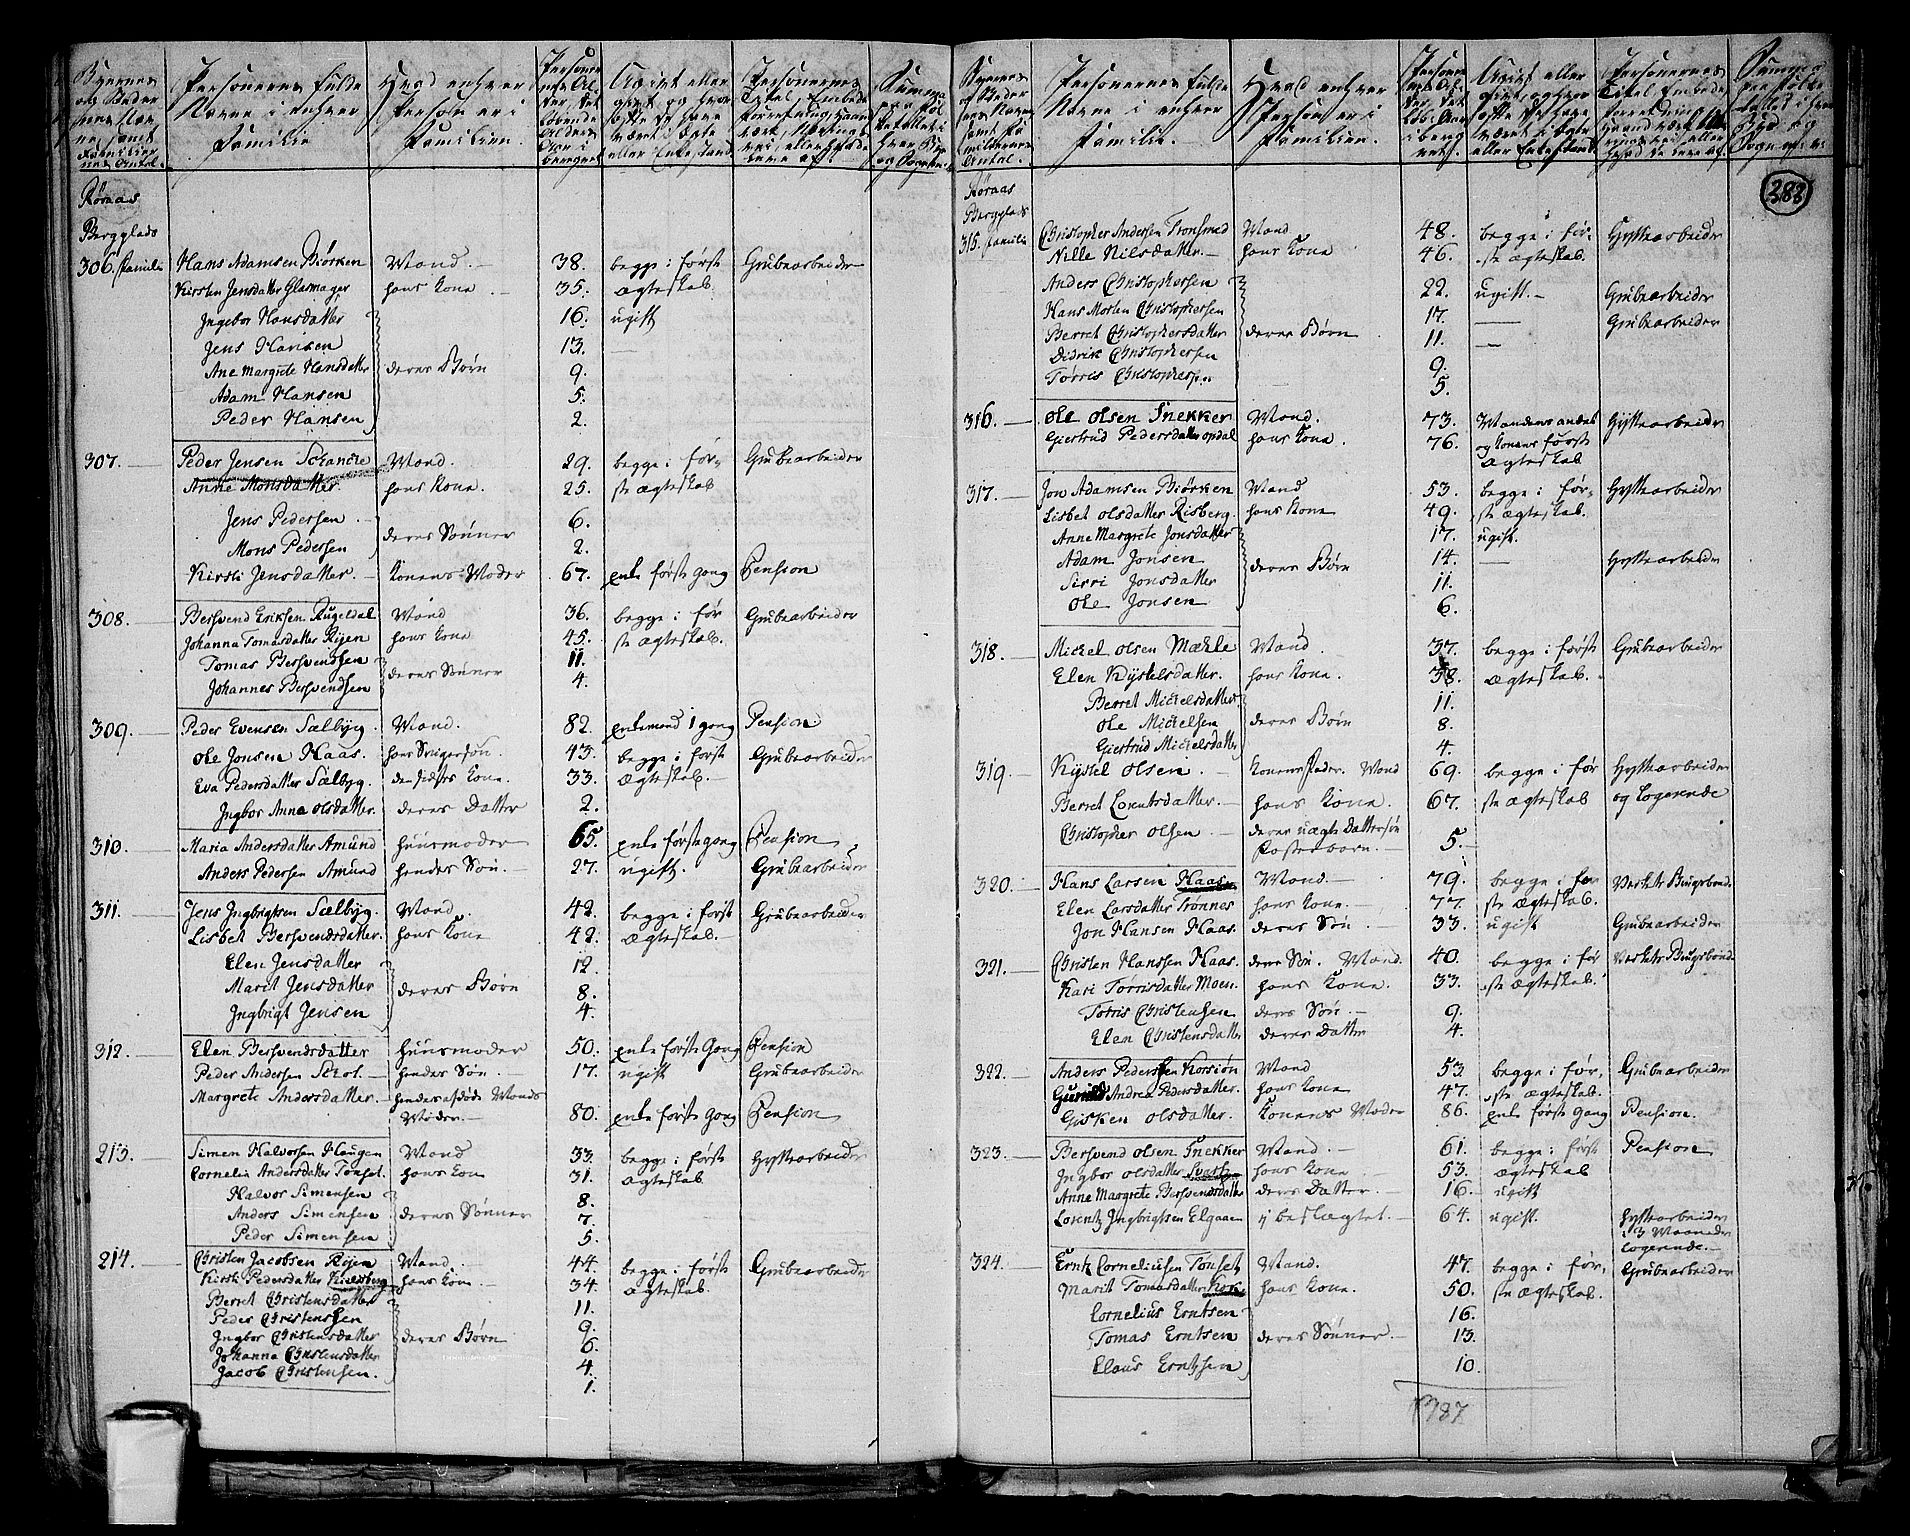 Personernes fulde
Navne i enhver
Familie
Hvad enhver
Person er i
Familien.
Røraas
Bergplads
306. Familie Hans Adamsen Biørken Mand. 38. begge i først Grubearbeider
Kirsten Jensdatter Glasmager hans Kone 35. ægteskab.
Ingebor Hansdatter 16. ugift
Jens Hansen 13. —
Ane Margrete Hansdatter deres Børn 9.
Adam Hansen 5.
Peder Hansen 2.
307. Peder Jensen Schancke Mand. 29. begge i før- Grubearbeider
Anne Monsdatter. hans Kone. 25. ste ægteskab
Jens Pedersen 6.
Mons Pedersen deres Sønner 2.
Kirsti Jensdatter. Konens Moder 67. enke første gang Pension
308. Bersvend Eriksen Kugeldal Mand 36. begge i før Grubearbeider
Johanna Tomasdatter Rijen hans Kone 45. ste ægteskab.
Tomas Bersvendsen 11.
Johannes Bersvendsen deres Sønner 4.
309. Peder Evensen Sælbyg. Mand. 82. enkemand 1 gang Pension
Ole Jonsen Haas. hans Svigersøn. 43. begge i først Grubearbeider
Eva Pedersdatter Sælbyg. Kone. 33. ægteskab.
Ingbor Anne Olsdatter. deres Datter 2.
310. Maria Andersdatter Amund Huusmoder 65. enke første gang Pension
Anders Pedersen Amund hendes Søn. 27. ugift. Grubearbeider
311. Jens Ingbrigtsen Sælbyg. Mand. 42. begge i først Grubearbeider
Lisbet Bersvendsdatter. hans Kone 42. ægteskab.
Elen Jensdatter 12.
Marit Jensdatter deres Børn 8.
Ingbrigt Jensen 4.
312. Elen Bersvendsdatter Huusmoder 50. enke første Gang Pension
Peder Andersen hendes Søn. 17. ugift Grubearbeider
Margrete Andersdatter. hendes afdøde Mands
Moder. 80. enke første Gang Pension
213. Simen Halvorsen Haugen Mand 33. begge i først Hyttearbeider
Cornelia Andersdatter Tønset hans Kon 31. ægteskab
Halvor Simensen 8.
Anders Simensen deres Sønner 7.
Peder Simensen 5.
214. Christen Jacobsen Rijen Mand. 44. begge i først Grubearbeider
Kirsti Pedersdatter hans Kone. 34. ægteskab.
Berret Christensdatter 11.
Peder Christensen 9.
Ingbor Christensdatter deres Børn 6.
Johanna Christensdatter 4.
Jacob Christensen. 1.
Personernes fulde
Navne i enhver
Familie.
Hvad enhver
Person er i
Familien.
383
Røraas
Bergplads
315. Familie Christopher Andersen Tronsmed Mand 48. begge i før- Hyttearbeider
Nille Nilsdatter. hans Kone 46. ste ægteskab.
Anders Christophersen 22. ugift. Grubearbeider
Hans Morten Christophersen 17. — Grubearbeider
Berret Christophersdatter deres Børn 11. —
Didrik Christophersen 9.
Torris Christophersen 5.
316. Ole Olsen Snekker Mand. 73. Mandens andet Hyttearbeider
Giertrud Pedersdatter Opdal hans Kone. 76. og Konens første
ægteskab
317. Jon Adamsen Biørken Mand 53. begge i før- Hyttearbeider
Lisbet Olsdatter Risberg. hans Kone 49. ste ægteskab.
Anne Margrete Jonsdatter 17. ugift.
Adam Jonsen deres Børn 14. — Hyttearbeider
Sirri Jonsdatter 11.
Ole Jonsen 6.
318. Mickel Olsen Mæhle Mand. 37. begge i først Grubearbeider
Elen Kystelsdatter. hans Kone. 38. ægteskab.
Berret Mickelsdatter 11.
Ole Mickelsen deres Børn 8.
Giertrud Mickelsdatter 4.
319. Kystel Olsen. Konens Fader. Mand 69. begge i før Hyttearbeider
Berret Lorentsdatter. hans Kone. 67. ste ægteskab og Logerende
Christopher Olsen deres uægte Dattersøn
Fosterbarn. 5.
320. Hans Larsen Haas Mand. 79. begge i før
Elen Larsdatter Trønnes hans Kone. 77. ste ægteskab.
Jon Hansen Haas. deres Søn. 33. ugift Grubearbeider
321. Christen Hanssen Haas. deres Søn. Mand. 40. begge i før
Kari Torrisdatter Moen. hans Kone. 33. ste ægteskab.
Torris Christensen deres Søn. 9.
Elen Christensdatter deres Datter 4.
322. Anders Pedersen Korsiøn Mand 53. begge i før- Grubearbeider
Gunild Andrea Pedersdatter. hans Kone 47. ste ægteskab.
Gisken Olsdatter. Konens Moder 86. enke første Gang Pension.
323. Bersvend Olsen Snekker Mand. 61. begge i først Pension
Ingbor Olsdatter hans Kone 53. ægteskab
Anne Margrete Bersvendsdatter deres Datter. 16. ugift
Lorentz Ingbrigtsen Elgaaen ij beslægtet. 64. ugift. Hyttearbeider
3 Maaneder
Logerende.
324. Erntz Corneliusen Tønset Mand. 47. begge i før- Grubearbeider
Marit Tomasdatter hans Kone. 50. ste ægteskab.
Cornelius Erntsen 16.
Tomas Erntsen deres Sønner. 13.
Claus Erntzsen 10.